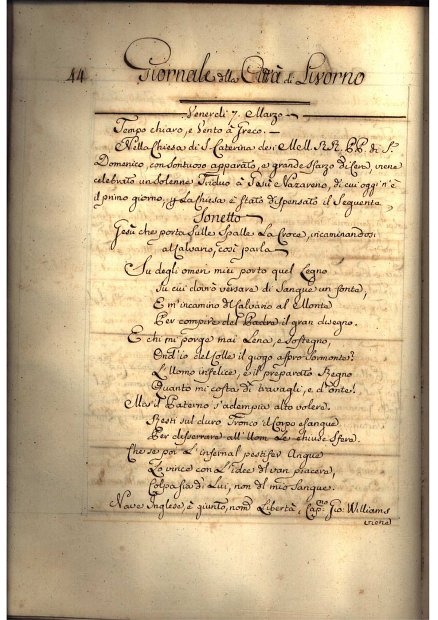 44 Giornale della Città di Livorno
Venerdi 7. Marzo
Tempo chiaro, e Vento à Greco.
Nella Chiesa di S. Caterina dei M.M. R.R. PP. di S.
Domenico, con sontuoso apparato, e grande sfarzo di Cera, viene
celebrato un Solenne Triduo à Gesù Nazareno, di cui oggi n'è
il primo giorno, e p La Chiesa è stato dispensato il Seguente
Sonetto
Gesù che porta sulle Spalle La Croce, incaminandosi
al Calvario, così parla
Su degli omeri miei porto quel Legno
Su cui dovrò versare di Sangue un fonte,
E m'incamino del Calvario al Monte
Per compire del Padre il gran disegno.
E chi mi porge mai Lena, e Sostegno,
Ond'io del Colle il giogo aspro Sormonte?
L'Uomo infelice, è il preparato Regno
Quanto mi costa di travagli, e d'onte!
Mas'il Paterno s'adempia alto volere.
Resti sul duro Tronco il Corpo esangue
Per disserrare all'Uom Le chiuse Sfere.
Che se poi L'infernal pestifer Angue
Lo vince con L'idee di van piacere,
Colpa sia di Lui, non del mio Sangue.
Nave Inglese, è giunto, nom.ª Libertà, Cap.no Gio: Williams
viene